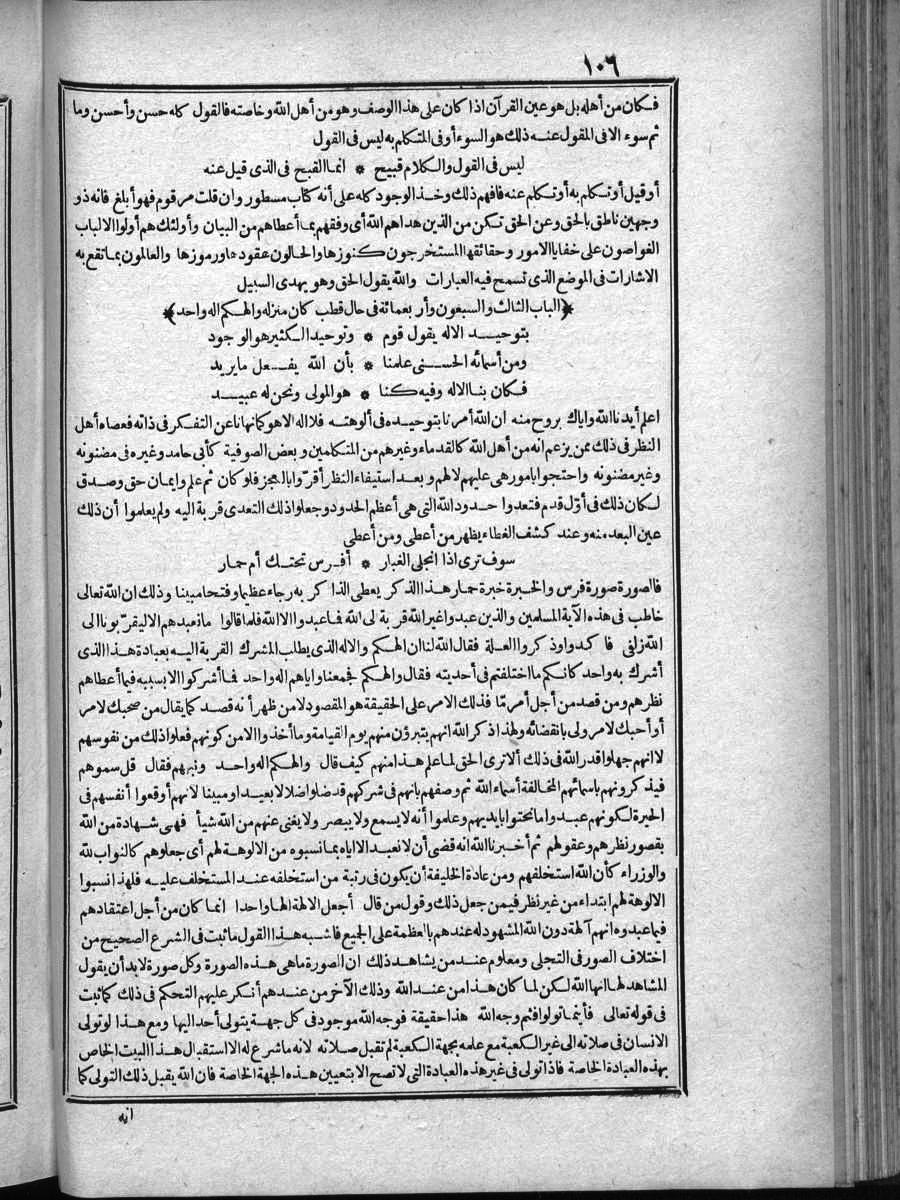 ١٠٦
فكان من أهله بل هو عين القرآن اذا كان على هذا الوصف وهو من أهل الله وخاصته فالقول كله حسن وأحسن وما
ثم سوء الا فى المقول عنه ذلك هو السوء أو فى المتكلم به ليس فى القول
ليس فى القول والكلام قبيح * انما القبح فى الذى قيل عنه
أو قيل أو تكلم به أو تكلم عنه فافهم ذلك وخذ الوجود كله على أنه كتاب مسطور وان قلت مرقوم فهو أبلغ فانه ذو
وجهين ناطق بالحق وعن الحق تكن من الذين هداهم الله أى وفقهم بما أعطاهم من البيان وأولئك هم أولوا الالباب
الغواصون على خفايا الامور وحقائقها المستخرجون كنوزها والحالون عقودها ورموزها والعالمون بما تقع به
الاشارات فى الموضع الذى تسمح فيه العبارات والله يقول الحق وهو يهدى السبيل
﴿الباب الثالث والسبعون وأربعمائة فى حال قطب كان منزله والهكم اله واحد﴾
بتوحيد الاله يقول قوم * وتوحيد الكثير هو الوجود
ومن أسمائه الحسنى علمنا * بأن الله يفعل ما يريد
فكان بنا الاله وفيه كنا * هو المولى ونحن له عبيد
اعلم أيدنا الله واياك بروح منه ان الله أمرنا بتوحيده فى ألوهته فلا اله الا هو كما نهانا عن التفكر فى ذاته فعصاه أهل
النظر فى ذلك ممن يزعم انه من أهل الله كالقدماء وغيرهم من المتكلمين وبعض الصوفية كأبى حامد وغيره فى مضنونه
وغير مضنونه واحتجوا بامور هى عليهم لا لهم وبعد استيفاء النظر أقرّوا بالعجز فلو كان ثم علم وايمان حق وصدق
لكان ذلك فى أوّل قدم فتعدوا حدود الله التى هى أعظم الحدود وجعلوا ذلك التعدى قربة اليه ولم يعلموا أن ذلك
عين البعد منه وعند كشف الغطاء يظهر من أعطى ومن أعطى
سوف ترى اذا انجلى الغبار * أفرس تحتك أم حمار
فالصورة صورة فرس والخبرة خبرة حمار هذا الذكر يعطى الذاكر به رجاء عظيما وفتحا مبينا وذلك ان الله تعالى
خاطب فى هذه الآية المسلمين والذين عبدوا غير الله قربة لى الله فما عبدوا الا الله فلما قالوا ما نعبدهم الا ليقرّبونا الى
الله زلفى فاكدوا وذكروا العلة فقال الله لنا ان الهكم والاله الذى يطلب المشرك القربة اليه بعبادة هذا الذى
أشرك به واحد كانكم ما اختلفتم فى أحديته فقال والهكم فجمعنا واياهم اله واحد فما أشركوا الا بسببه فيما أعطاهم
نظرهم ومن قصد من أجل أمر مّا فذلك الامر على الحقيقة هو المقصود لا من ظهر أنه قصد كما يقال من صحبك لامر
أو أحبك لامر ولى بانقضائه ولهذا ذكر الله انهم يتبرؤن منهم يوم القيامة وما أخذوا الا من كونهم فعلوا ذلك من نفوسهم
لا انهم جهلوا قدر الله فى ذلك ألا ترى الحق لما علم هذا منهم كيف قال والهكم اله واحد ونبههم فقال قل سموهم
فيذكرونهم باسمائهم المخالفة أسماء الله ثم وصفهم بانهم فى شركهم قد ضلوا ضلالا بعيدا ومبينا لانهم أوقعوا أنفسهم فى
الحيرة لكونهم عبدوا ما نحتوا بايديهم وعلموا أنه لا يسمع ولا يبصر ولا يغنى عنهم من الله شيأ فهى شهادة من الله
بقصور نظرهم وعقولهم ثم أخبرنا الله انه قضى أن لا نعبد الا اياه بما نسبوه من الالوهة لهم أى جعلوهم كالنواب لله
والوزراء كأن الله استخلفهم ومن عادة الخليفة أن يكون فى رتبة من استخلفه عند المستخلف عليه فلهذا نسبوا
الالوهة لهم ابتداء من غير نظر فيمن جعل ذلك وقول من قال أجعل الالهة الها واحدا انما كان من أجل اعتقادهم
فيما عبدوه انهم آلهة دون الله المشهود له عندهم بالعظمة على الجميع فاشبه هذا القول ما ثبت فى الشرع الصحيح من
اختلاف الصور فى التجلى ومعلوم عند من يشاهد ذلك ان الصورة ما هى هذه الصورة وكل صورة لا بد أن يقول
المشاهد لها انها الله لكن لما كان هذا من عند الله وذلك الآخر من عندهم أنكر عليهم التحكم فى ذلك كما ثبت
فى قوله تعالى فأينما تولوا فثم وجه الله هذا حقيقة فوجه الله موجود فى كل جهة يتولى أحد اليها ومع هذا لو تولى
الانسان فى صلاته الى غير الكعبة مع علمه بجهة الكعبة لم تقبل صلاته لانه ما شرع له الا استقبال هذا البيت الخاص
بهذه العبادة الخاصة فاذا تولى فى غير هذه العبادة التى لا تصح الا بتعيين هذه الجهة الخاصة فان الله يقبل ذلك التولى كما
انه